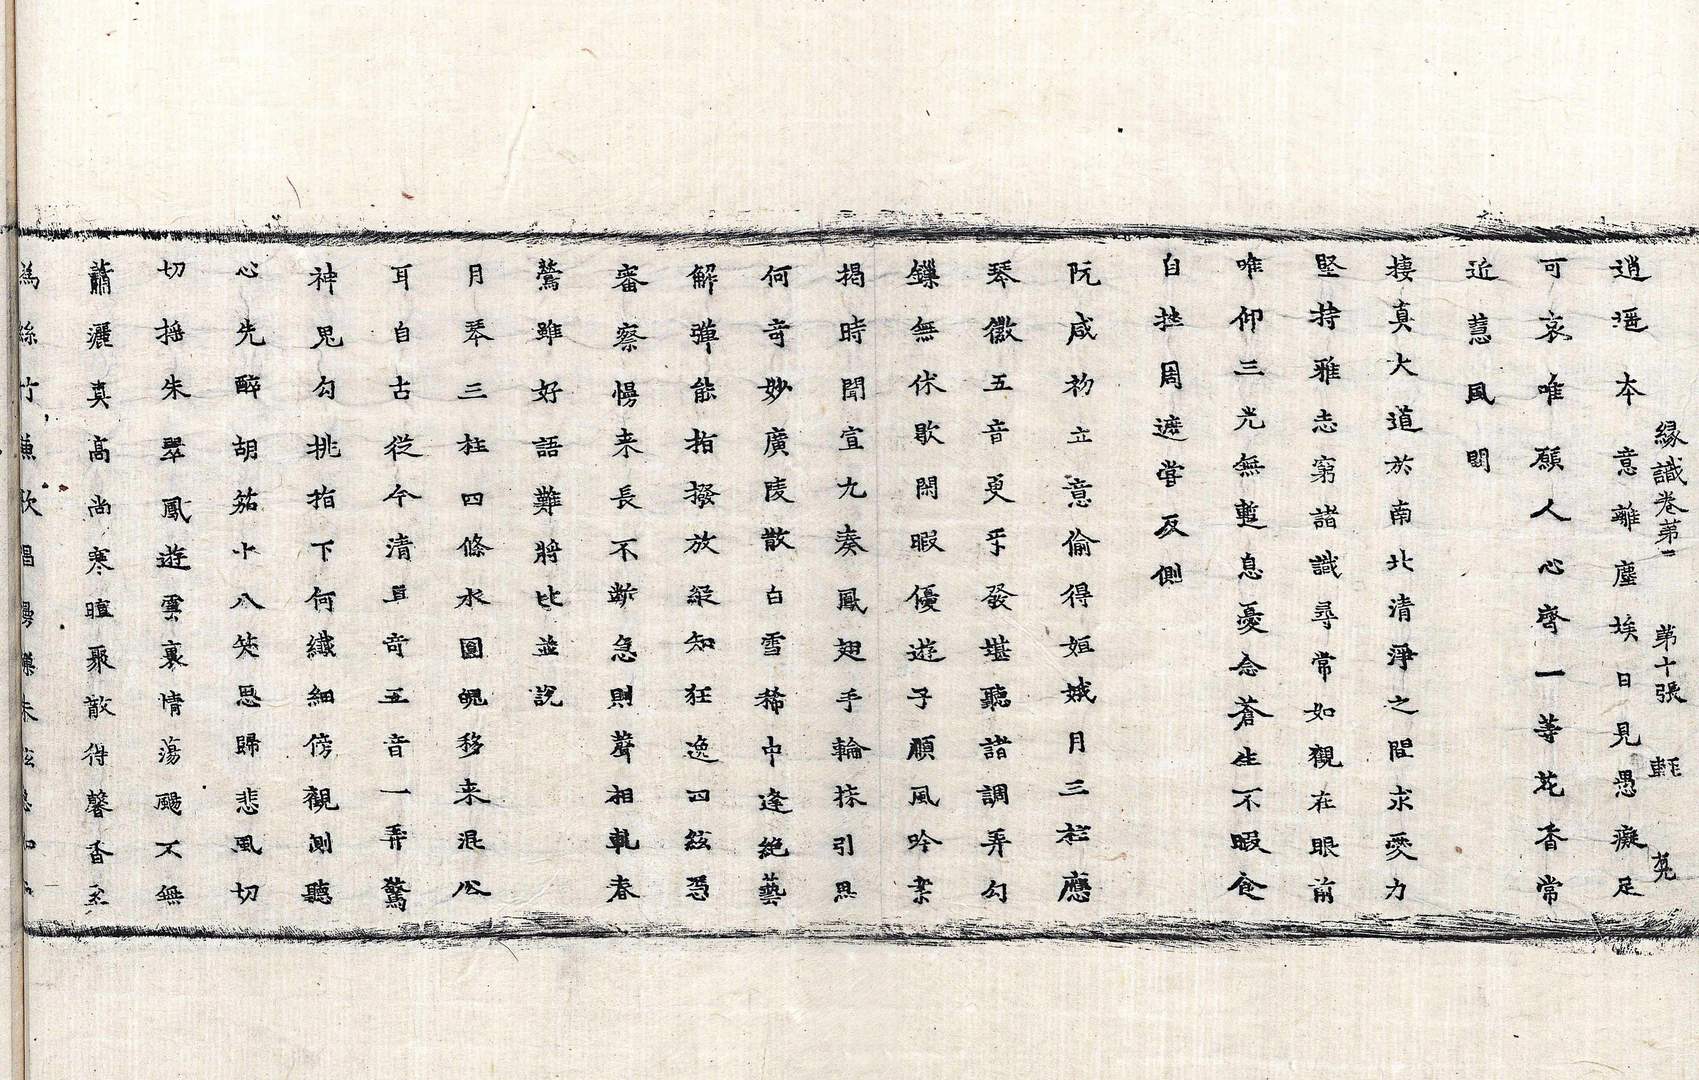 緣識卷第二　第十張　輕　蒬
逍遥本意離塵埃日見愚癡足
可哀唯願人心齊一等花香常
近慧風開
棲真大道於南北清淨之間求愛力
堅持雅志窮諸識尋常如觀在眼前
唯仰三光無蹔息憂念蒼生不暇食
自挫周遮當反側
阮咸初立意偷得姮娥月三柱應
琴徽五音更手發堪聽諸調弄勾
鑠無休歇閑暇優遊子順風吟案
揭時聞宣九奏鳳翅手輪抹引思
何奇妙廣陵散白雪稀中逢絕藝
解彈能指撥放縱知狂逸四絃憑
審察慢来長不斷急則聲相軋春
鶯雖好語難將比並說
月琴三柱四條水圓晛移来混公
耳自古從今清且奇五音一弄驚
神鬼勾挑指下何纖細傍觀測聽
心先醉胡笳十八笑思歸悲風切
切揺朱翠鳳遊雲裏情蕩颺不無
蕭灑真高尚寒暄聚散得馨香
為絲竹兼歌唱